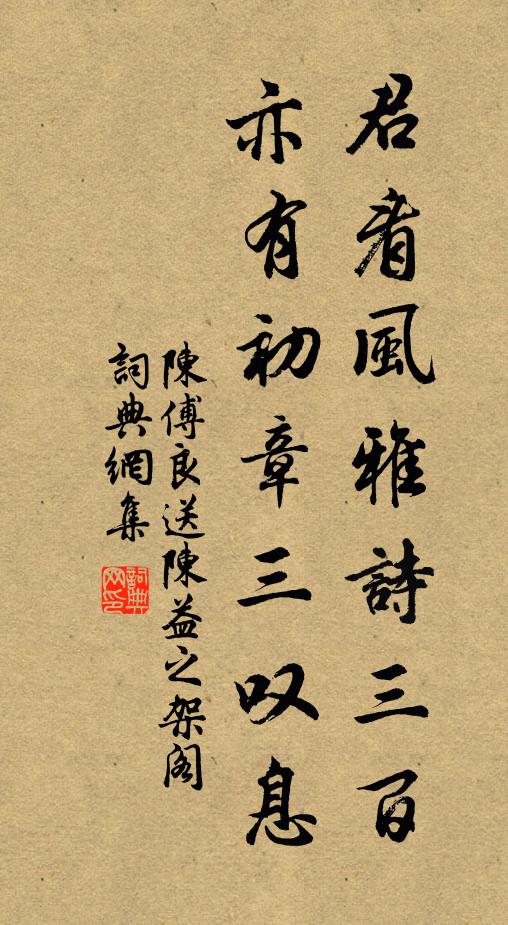 君看風雅詩三百
亦有初章三叹息
陳傅良送陳益之架阁
詞典網集
詞典网印